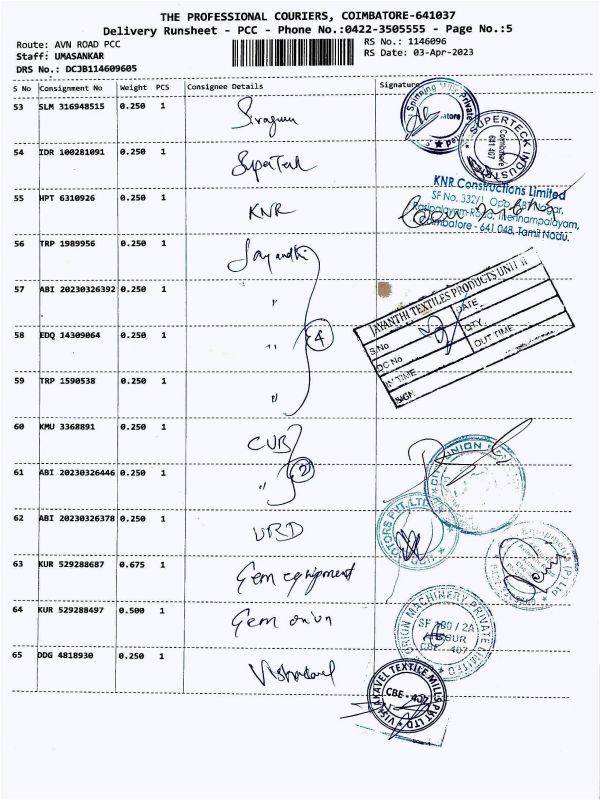 THE PROFESSIONAL COURIERS, COIMBATORE-641037
Delivery Runsheet - PCC - Phone No.:0422-3505555 - Page No.:5
Route: AVN ROAD PCC
RS No.: 1146096
Staff: UMASANKAR
RS Date: 03-Apr-2023
DRS No.: DCJB114609605
S No Consignment No Weight PCS Consignee Details Signature
53 SLM 316948515 0.250 1
Spinning Mills Private
54 IDR 100281091 0.250 1 Supertech
SUPERTECK INDUSTR
Coimbatore
641 407
55 HPT 6310926 0.250 1 KNR
KNR Constructions Limited
SF No. 332/1, Opp.
Nagar,
Road, Thennampalayam,
Coimbatore - 641 048, Tamil Nadu.
56 TRP 1989956 0.250 1 Jayanthi
57 ABI 20230326392 0.250 1 "
58 EDQ 14309064 0.250 1 " 4
59 TRP 1590538 0.250 1 "
JAYANTHI TEXTILES PRODUCTS UNIT II
S.No DATE
DC No QTY.
IN TIME OUT TIME
SIGN
60 KMU 3368891 0.250 1 CUB
61 ABI 20230326446 0.250 1 " 2
UNION
62 ABI 20230326378 0.250 1
MOTORS PVT. LTD
63 KUR 529288687 0.675 1 Gem equipment
(P) Ltd
64 KUR 529288497 0.500 1 Gem orion
ORION MACHINERY PRIVATE
SF 180 / 2A
CBE - 407
65 DDG 4818930 0.250 1
VISHAKAVEL TEXTILE MILLS PVT LTD
CBE - 407